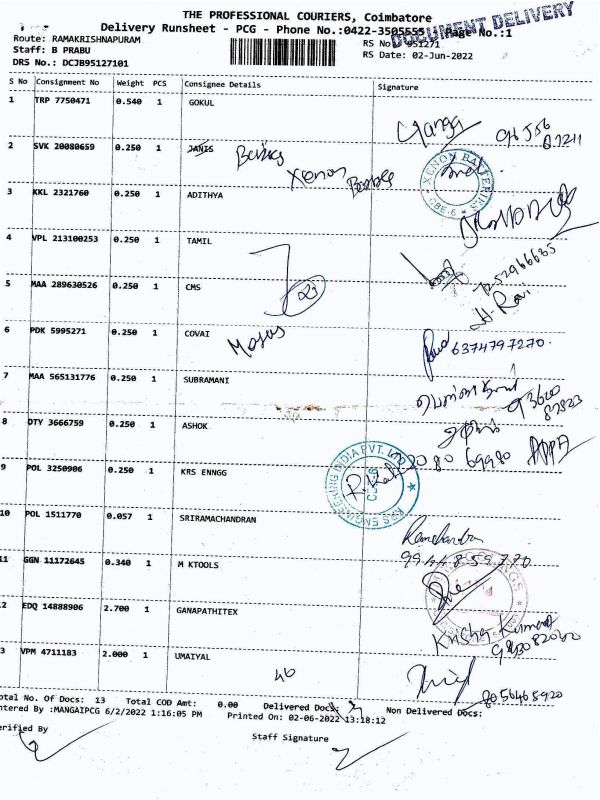 THE PROFESSIONAL COURIERS, Coimbatore
DOCUMENT DELIVERY
Delivery Runsheet - PCG - Phone No.:0422-3505555 Page No.:1
Route: RAMAKRISHNAPURAM RS No 951271
Staff: B PRABU RS Date: 02-Jun-2022
DRS No.: DCJB95127101
S No Consignment No Weight PCS Consignee Details Signature
1 TRP 7750471 0.540 1 GOKUL
Ganga
2 SVK 20080659 0.250 1 JANIS
Xenon
XENOX BATTERIES CBE-6
3 KKL 2321760 0.250 1 ADITHYA
4 VPL 213100253 0.250 1 TAMIL
5 MAA 289630526 0.250 1 CMS
23
Ravi
6 PDK 5995271 0.250 1 COVAI
6374797270
7 MAA 565131776 0.250 1 SUBRAMANI
8 DTY 3666759 0.250 1 ASHOK
9 POL 3250906 0.250 1 KRS ENNGG
80 69980
10 POL 1511770 0.057 1 SRIRAMACHANDRAN
Ramchandra
9944859770
11 GGN 11172645 0.340 1 M KTOOLS
2 EDQ 14888906 2.700 1 GANAPATHITEX
Krisha Kumar
3 VPM 4711183 2.000 1 UMAIYAL
46
8056465920
otal No. Of Docs: 13 Total COD Amt: 0.00 Delivered Docs: Non Delivered Docs:
ntered By :MANGAIPCG 6/2/2022 1:16:05 PM Printed On: 02-06-2022 13:18:12
erified By
Staff Signature